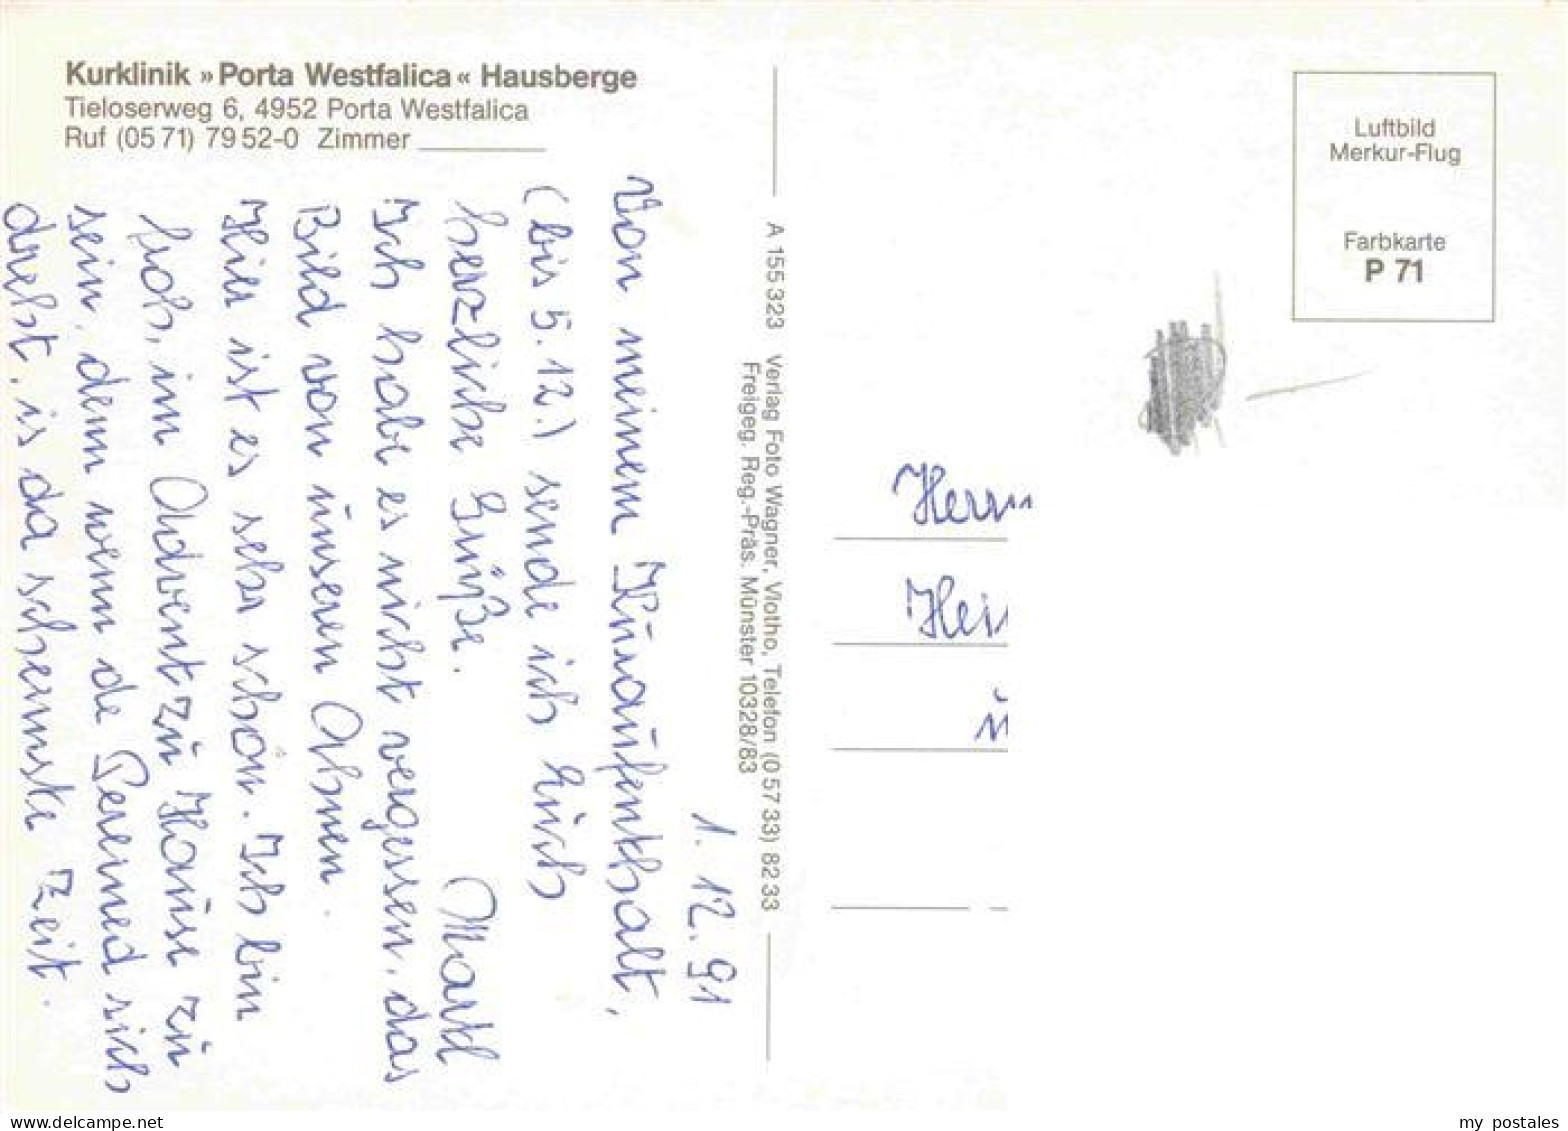 Kurklinik »Porta Westfalica« Hausberge
Tieloserweg 6, 4952 Porta Westfalica
Ruf (05 71) 79 52-0 Zimmer
1. 12. 91
Von meinem Kuraufenthalt,
(bis 5. 12.) sende ich Euch
herzliche Grüße. Martl
Ich habe es nicht vergessen, das
Bild von unseren Ahnen.
Hier ist es sehr schön. Ich bin
froh, im Advent zu Hause zu
sein, denn wenn de Peremed sich
dreht, is da schennste Zeit.
A 155 323 Verlag Foto Wagner, Vlotho, Telefon (0 57 33) 82 33
Freigeg. Reg.-Präs. Münster 10328/83
Luftbild
Merkur-Flug
Farbkarte
P 71
Herrn
my postales